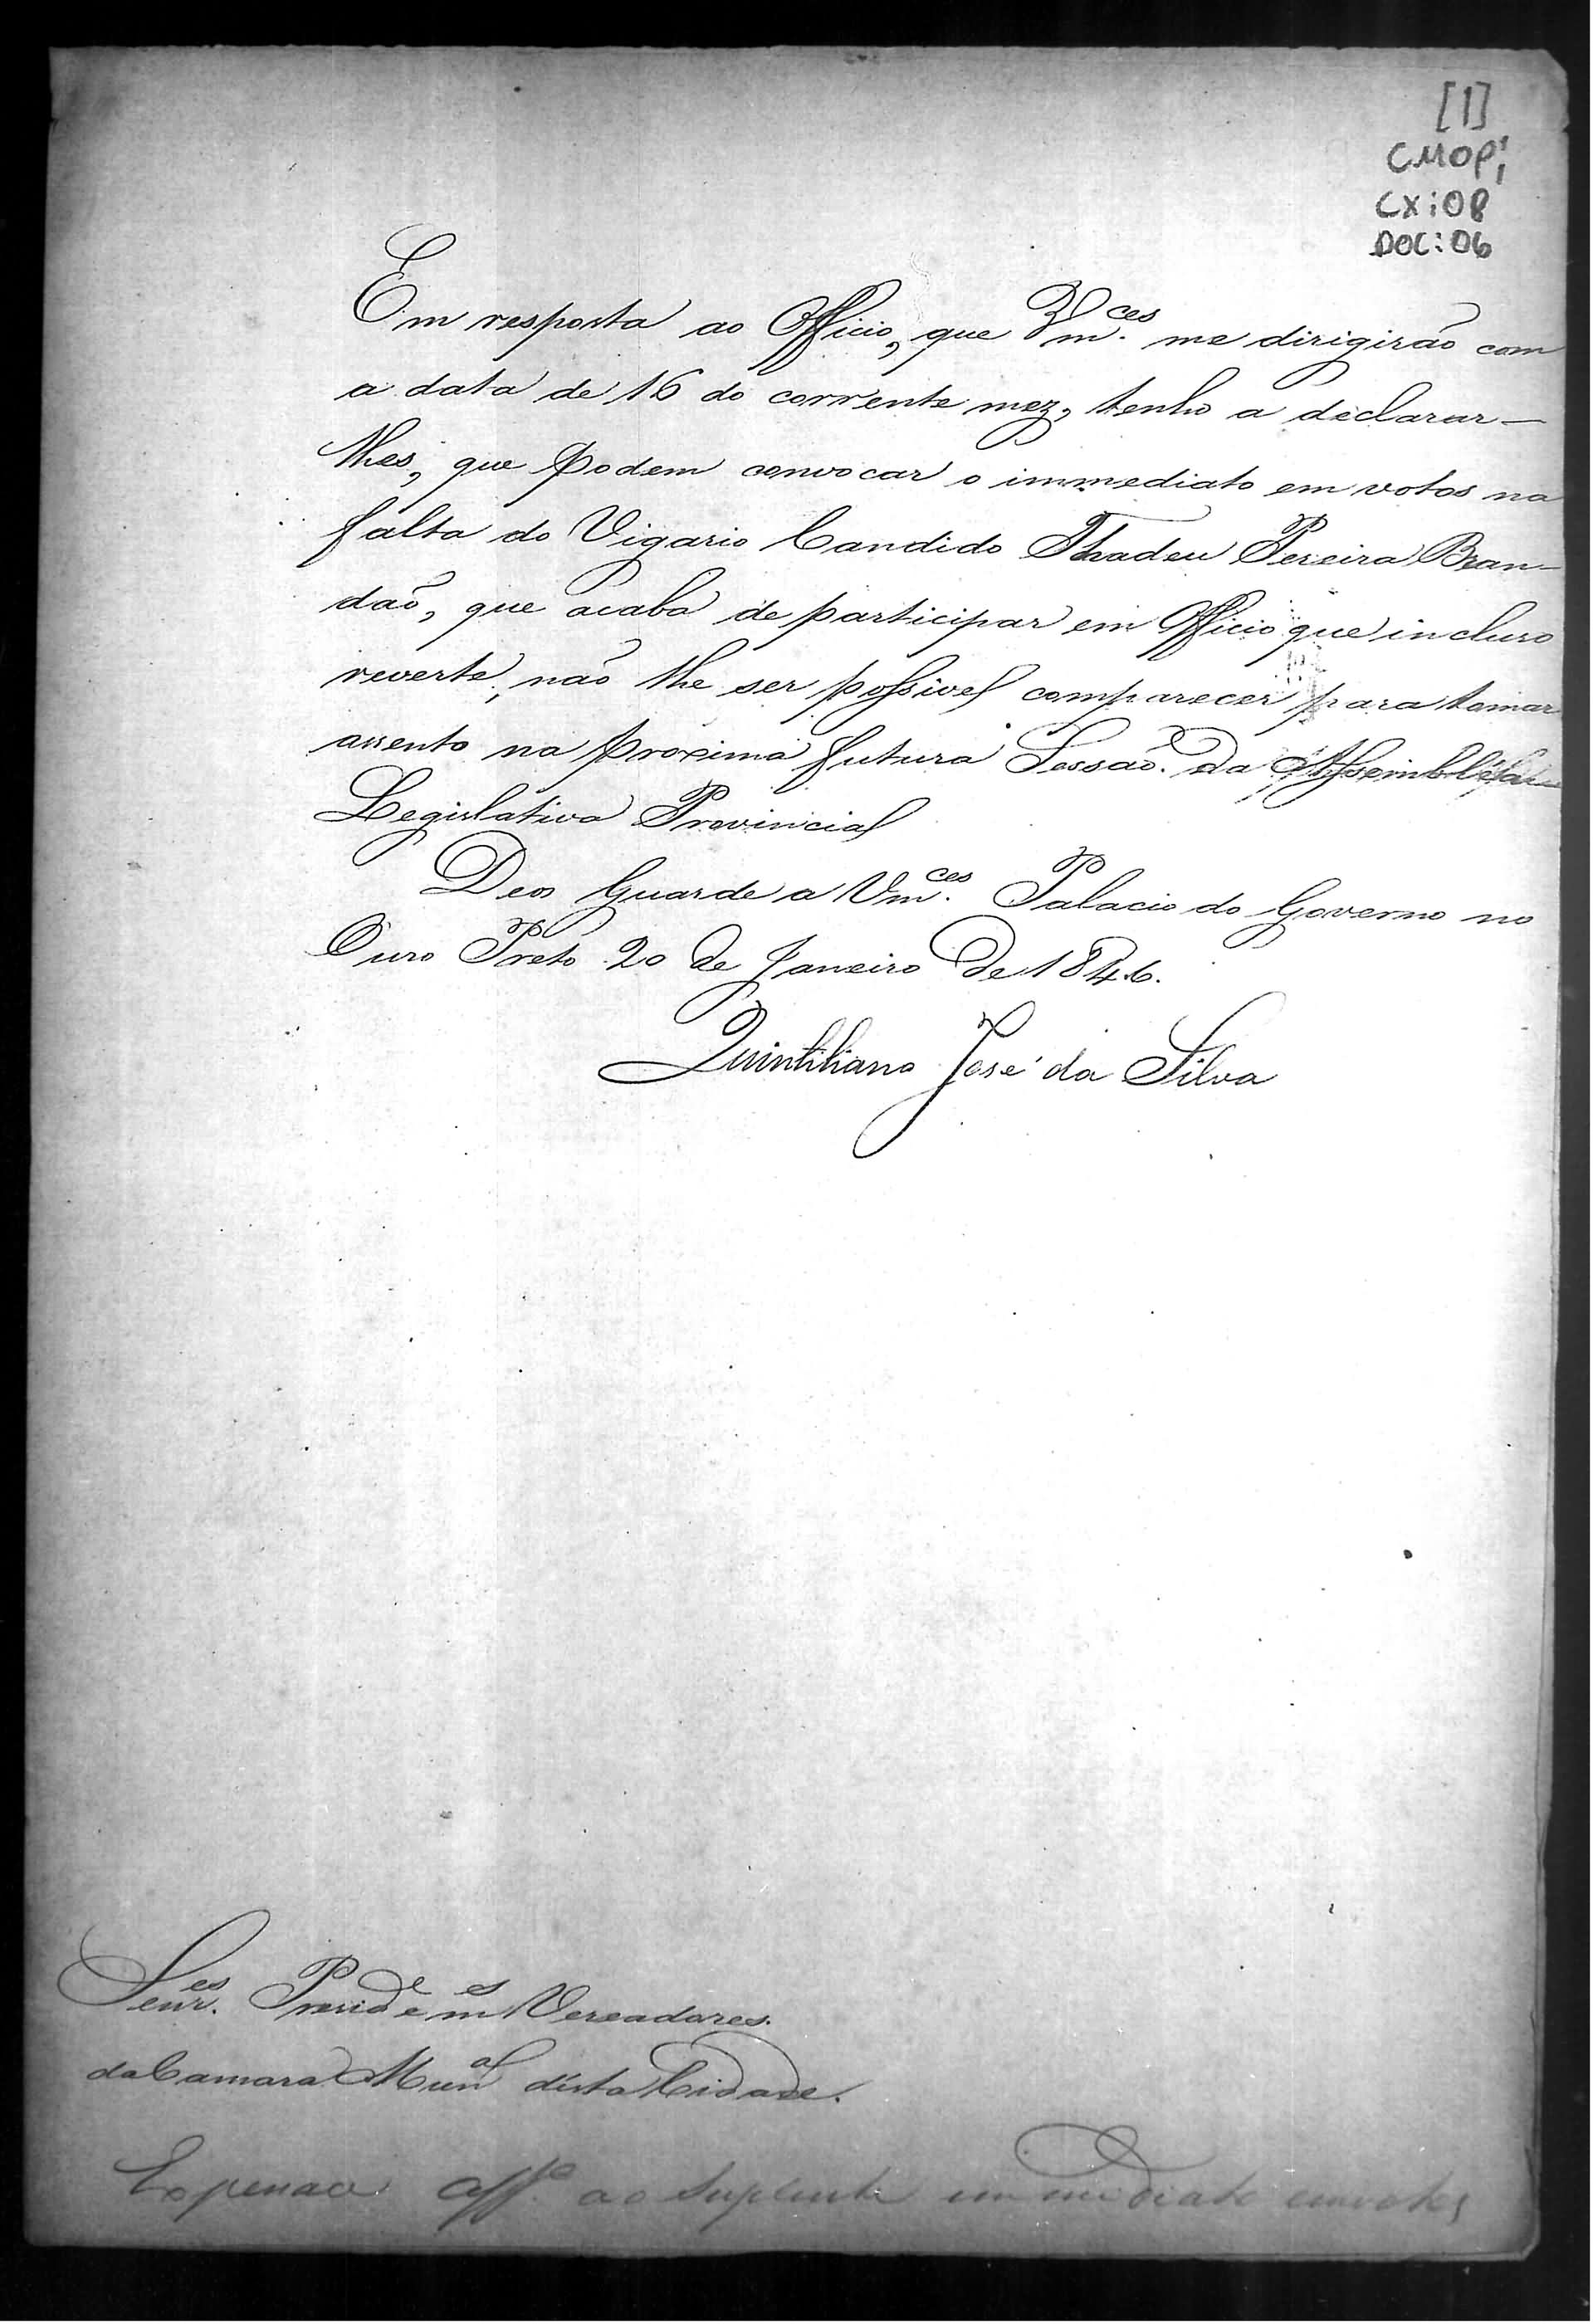 [1]
CMOP,
CX:08
DOC:06
Em resposta ao Officio, que Vm.ces me dirigirão com
a data de 16 do corrente mez, tenho a declarar-
lhes, que podem convocar o immediato em votos na
falta do Vigario Candido Thadeu Pereira Bran-
daõ, que acaba de participar em Officio que incluso
reverte, naõ lhe ser possivel comparecer para tomar
assento na proxima futura Sessaõ da Assembléa
Legislativa Provincial
Deos Guarde a Vm.ces Palacio do Governo no
Ouro Preto 20 de Janeiro de 1846.
Quintiliano José da Silva
Senr.es Presid.e e m.es Vereadores
da Camara Mun.al desta Cidade.
off.o ao Suplente immediato em votos